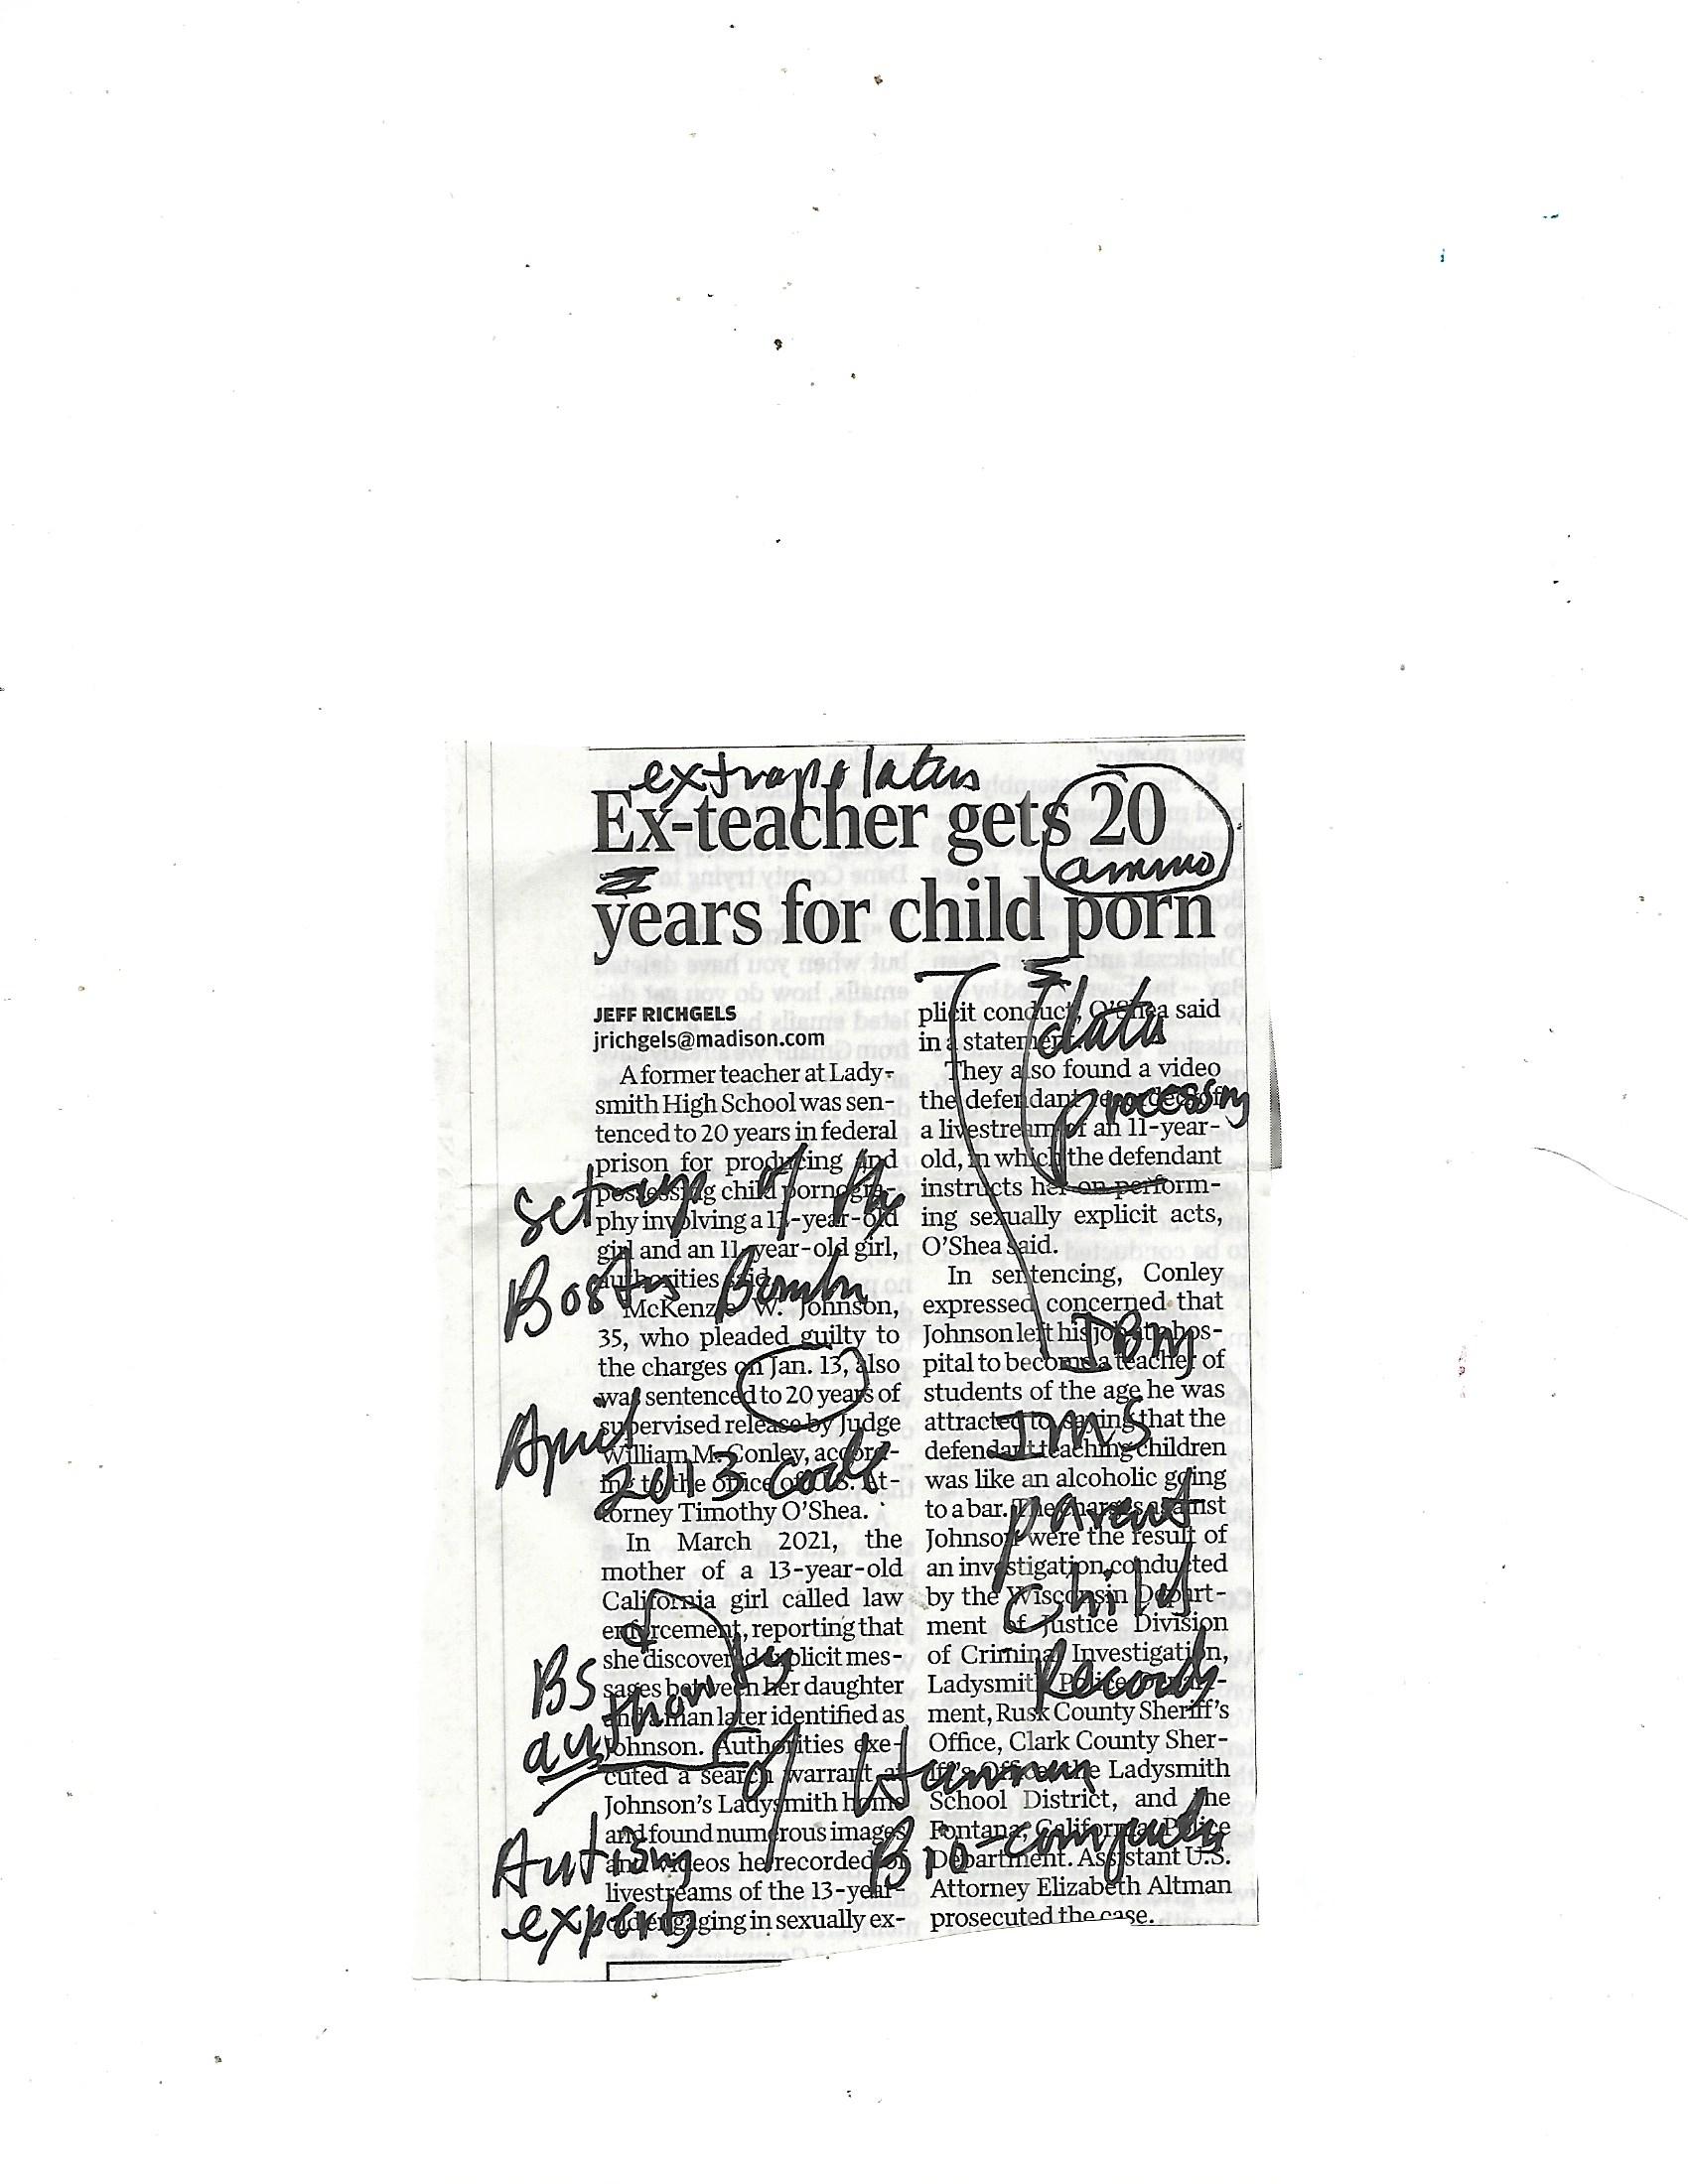 extrapolatus
Ex-teacher gets 20
ammo
years for child porn
JEFF RICHGELS
jrichgels@madison.com
A former teacher at Lady-
smith High School was sen-
tenced to 20 years in federal
prison for producing and
possessing child pornogra-
phy involving a 13-year-old
girl and an 11-year-old girl,
authorities said.
McKenzie W. Johnson,
35, who pleaded guilty to
the charges on Jan. 13, also
was sentenced to 20 years of
supervised release by Judge
William M. Conley, accord-
ing to the office of U.S. At-
torney Timothy O'Shea.
In March 2021, the
mother of a 13-year-old
California girl called law
enforcement, reporting that
she discovered explicit mes-
sages between her daughter
and a man later identified as
Johnson. Authorities exe-
cuted a search warrant at
Johnson's Ladysmith home
and found numerous images
and videos he recorded of
livestreams of the 13-year-
old engaging in sexually ex-
plicit conduct, O'Shea said
in a statement.
They also found a video
the defendant recorded of
a livestream of an 11-year-
old, in which the defendant
instructs her on perform-
ing sexually explicit acts,
O'Shea said.
In sentencing, Conley
expressed concerned that
Johnson left his job at a hos-
pital to become a teacher of
students of the age he was
attracted to, saying that the
defendant teaching children
was like an alcoholic going
to a bar. The charges against
Johnson were the result of
an investigation conducted
by the Wisconsin Depart-
ment of Justice Division
of Criminal Investigation,
Ladysmith Police Depart-
ment, Rusk County Sheriff's
Office, Clark County Sher-
iff's Office, the Ladysmith
School District, and the
Fontana, California, Police
Department. Assistant U.S.
Attorney Elizabeth Altman
prosecuted the case.
set-up of the
Boston Bomb
April
2013 code
BS
authority
of Human
Bio-computer
Autism
experts
data
processing
IBM
IMS
parent
child
Records